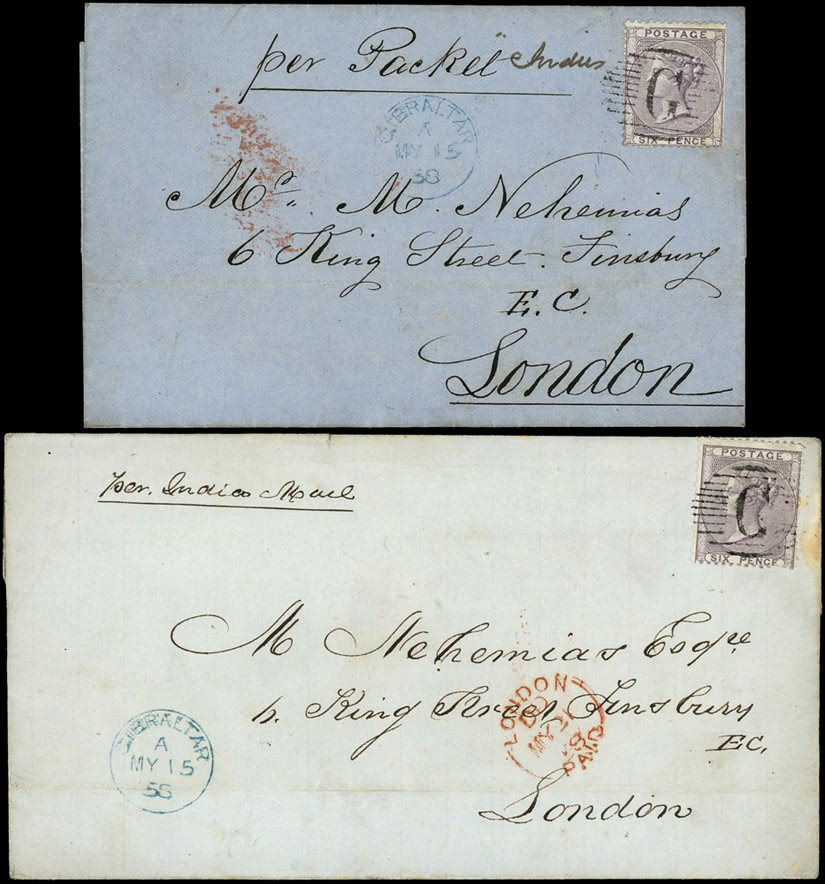 per Packet "Indus
POSTAGE
G
SIX PENCE
GIBRALTAR
A
MY 15
58
Mr. M. Nehemias
6 King Street. Finsbury
E.C.
London
POSTAGE
G
SIX PENCE
per India Mail
M Nehemias Esqre
6. King Street Finsbury
EC.
London
LONDON
MY 21
58
PAID
GIBRALTAR
A
MY 15
58